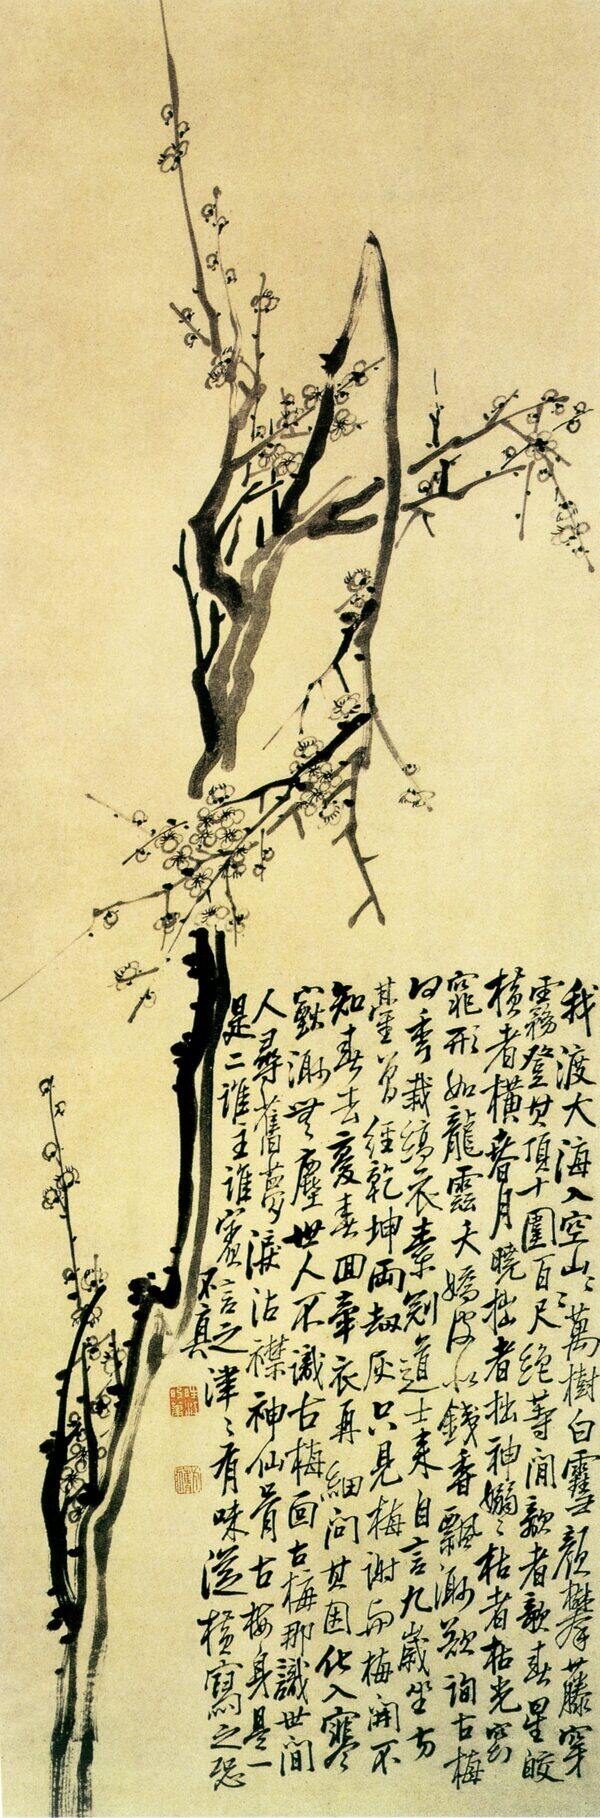 我渡大海入空山山萬樹白雪顏攀藤穿
霧登其頂十圍百尺絕等閒欹者欹春星皎
橫者橫春月曉拙者拙神嫋嫋枯者枯光窈
窕形如龍靈夭嬌皮如錢香飄渺欲詢古梅
何季栽縞衣素冠道士来自言九歲坐方
臺曾經乾坤兩劫灰只見梅謝而梅開不
知春去處春回牽衣再細問其因化入寒
巖渺無塵世人不識古梅面古梅那識世間
人尋舊夢淚沾襟神仙骨古梅身是一
是二誰主誰賓言之津津有味從橫寫之恐
不真